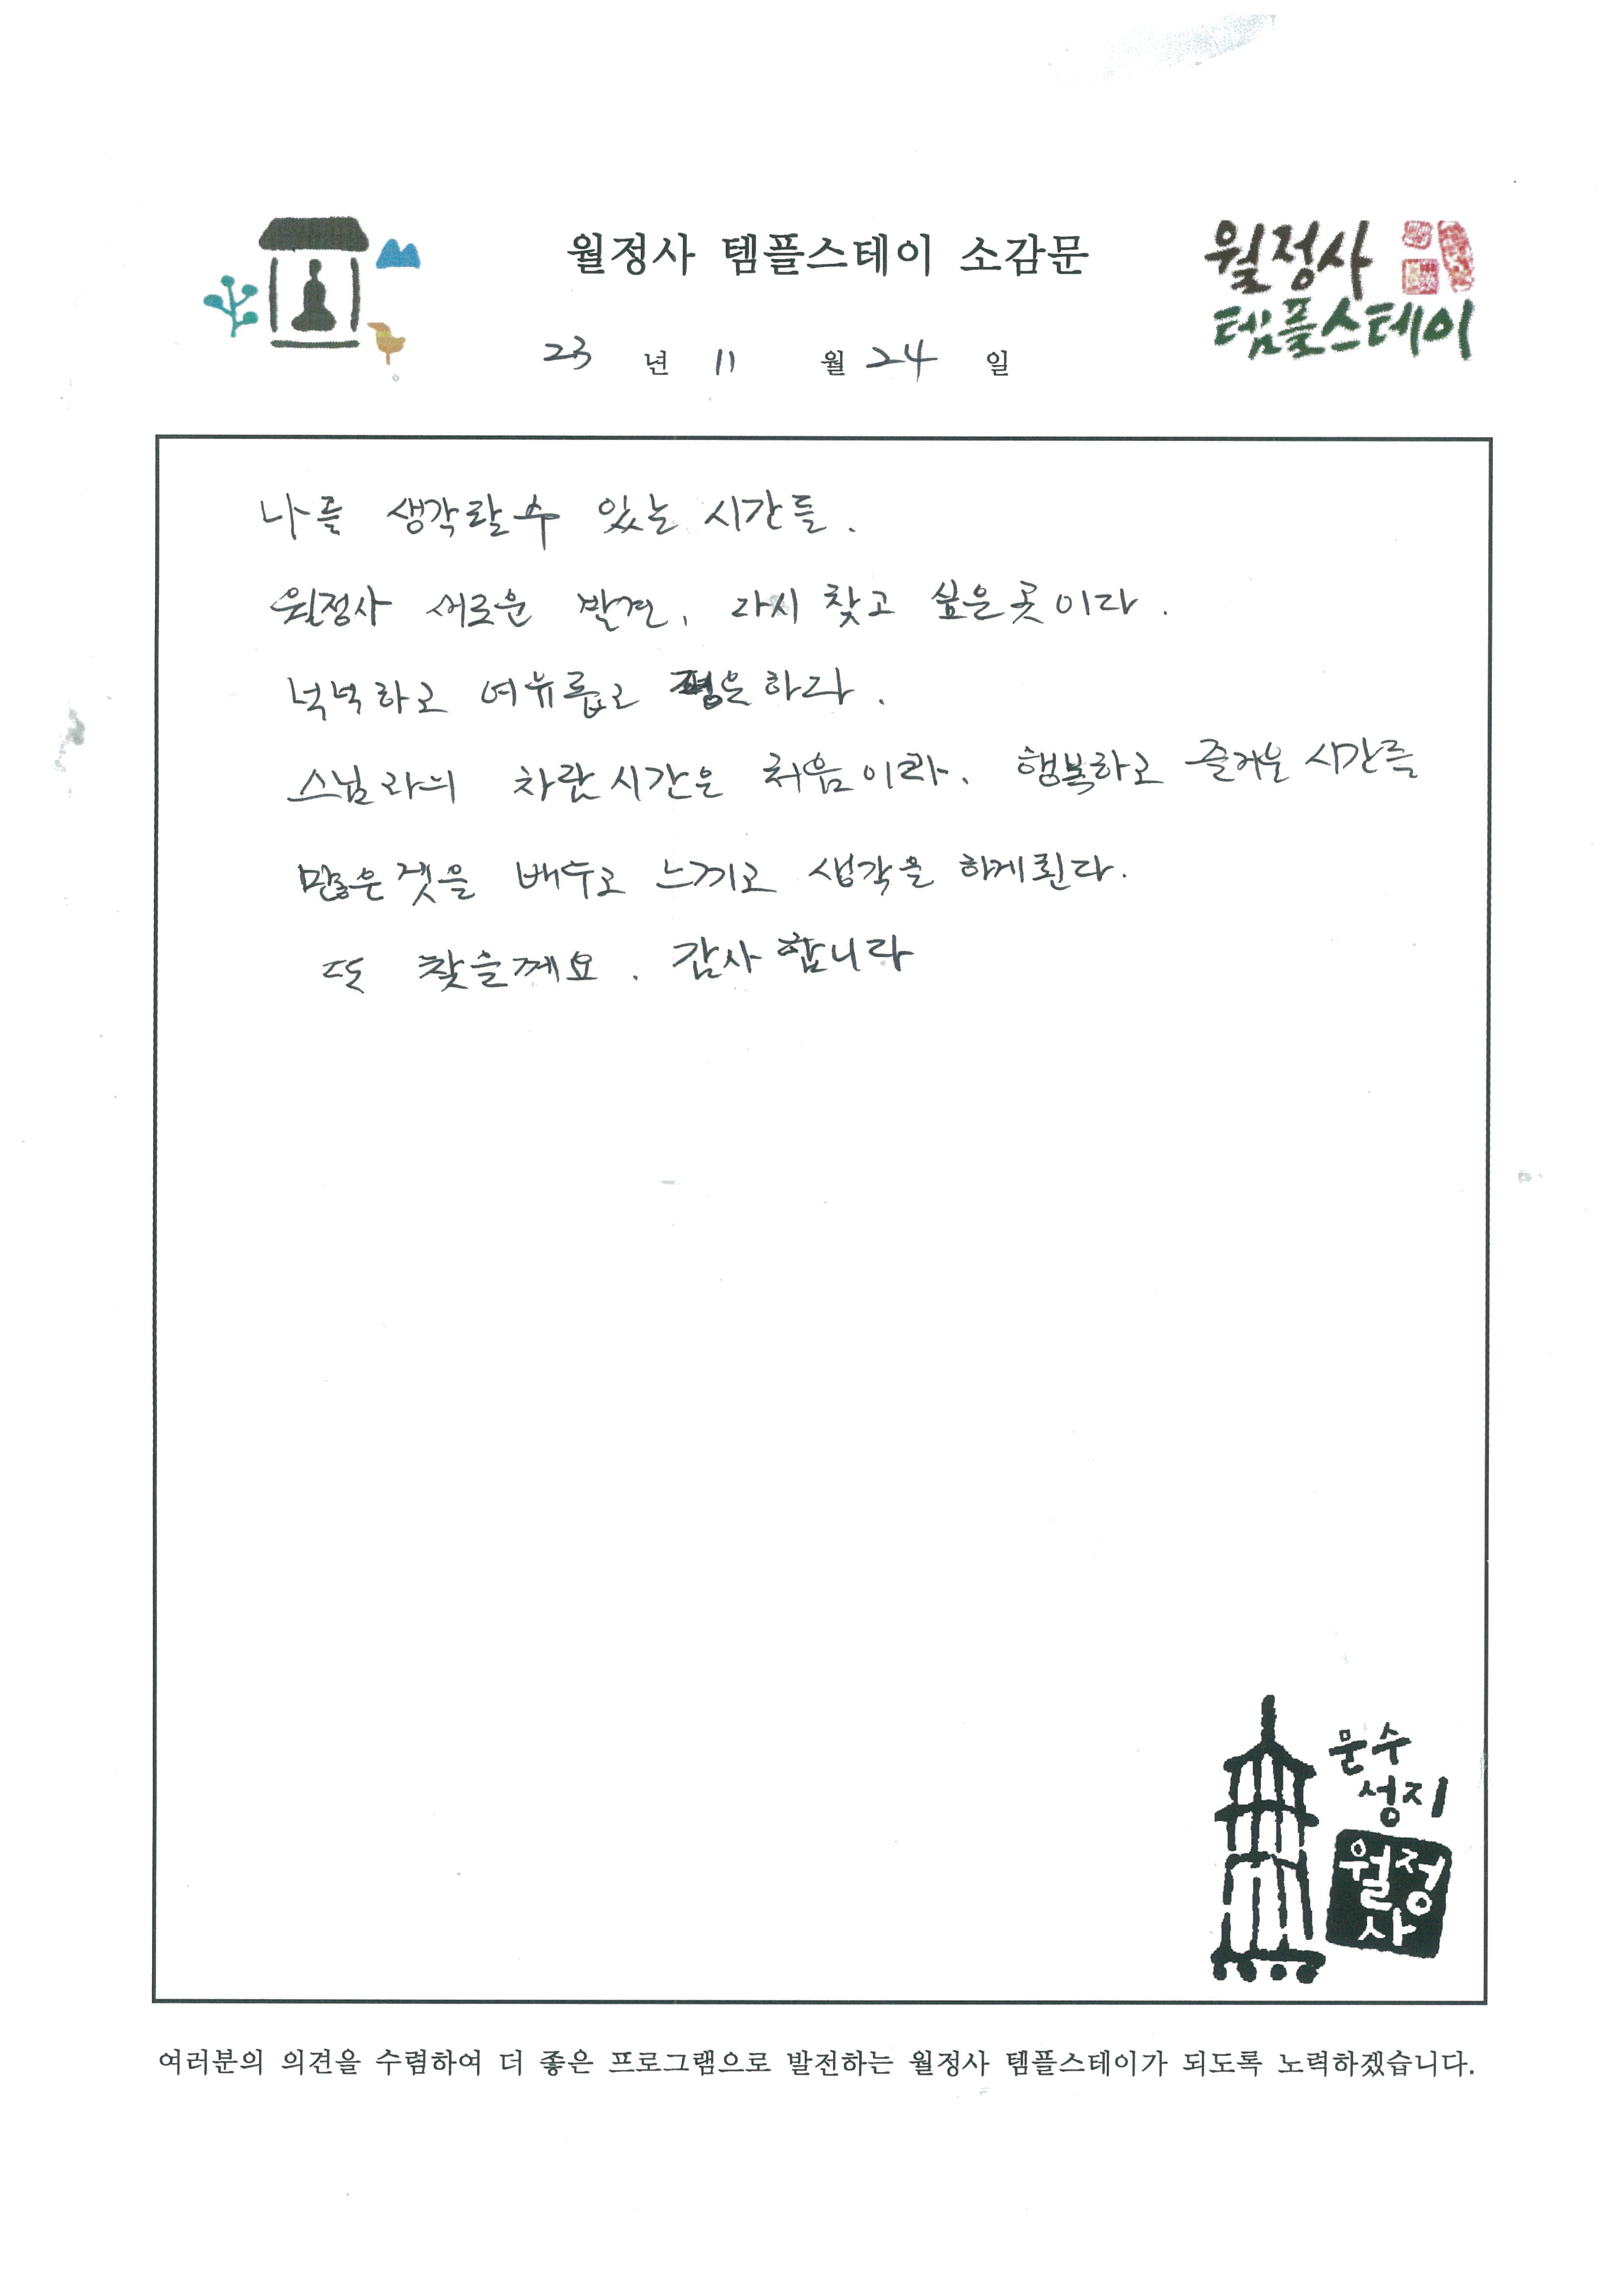 월정사 템플스테이 소감문
월정사
템플스테이
23 년 11 월 24 일
나를 생각할수 있는 시간들.
월정사 새로운 발견, 다시 찾고 싶은곳이다.
넉넉하고 여유롭고 평온하다.
스님과의 차담시간은 처음이라. 행복하고 즐거운 시간를
많은것을 배우고 느끼고 생각을 하게된다.
또 찾을께요. 감사합니다
문수
성지
월정
사
여러분의 의견을 수렴하여 더 좋은 프로그램으로 발전하는 월정사 템플스테이가 되도록 노력하겠습니다.